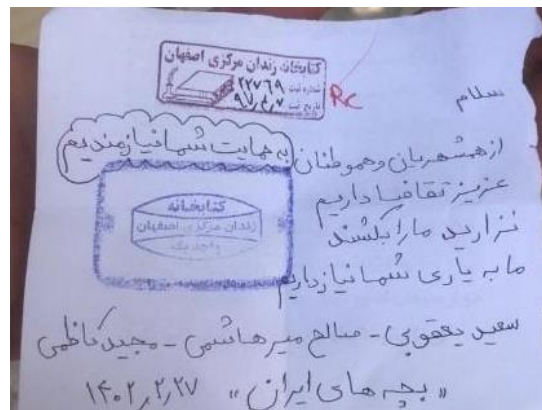 کتابخانه زندان مرکزی اصفهان
شماره ثبت ۲۲۷۶۹
تاریخ ثبت ۹۷,۲,۷
Rc
سلام
از همشهریان و هموطنان به حمایت شما نیازمندیم
عزیز تقاضا داریم
نزارید ما را بکشند
ما به یاری شما نیاز داریم
کتابخانه
زندان مرکزی اصفهان
واحد یک
سعید یعقوبی - صالح میرهاشمی - مجید کاظمی
"بچه های ایران" ۱۴۰۲,۲,۲۷